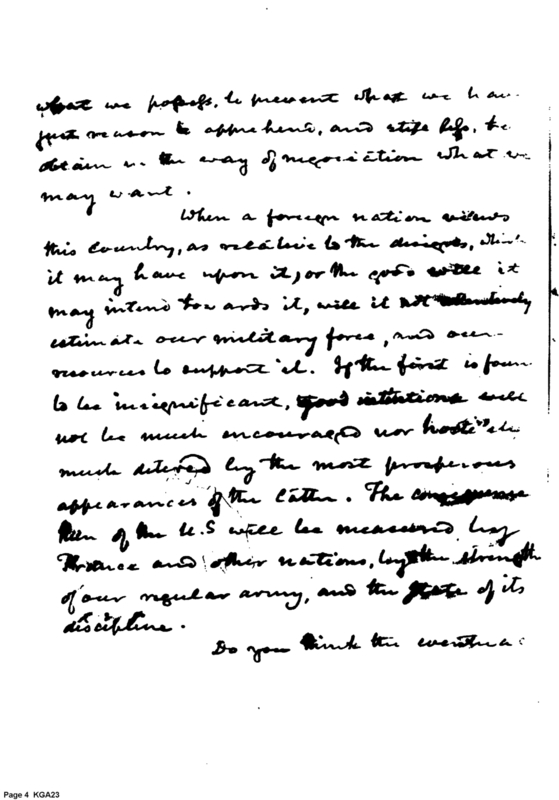 what we possess, to prevent what we have
just reason to apprehend, and still less, to
obtain in the way of negociation what we
may want.
When a foreign nation views
this country, as relative to the designs, which
it may have upon it, or the good will it
may intend towards it, will it not attentively
estimate our military force, and our
resources to support it. If the first is found
to be insignificant, good intentions will
not be much encouraged nor hostile
much detered by the most prosperous
appearances of the latter. The consequence
then of the U.S will be measured by
France and other nations, by the strength
of our regular army, and the state of its
discipline.
Do you think the eventual
Page 4 KGA23